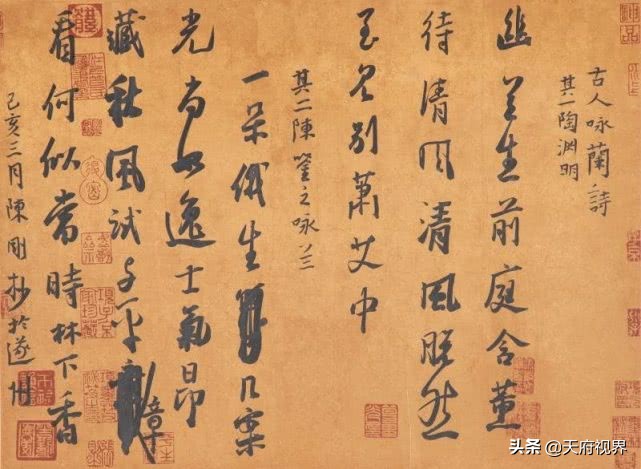 古人咏蘭詩
其一陶渊明
幽兰生前庭含薰
待清风清風脱然
至见别萧艾中
其二陳莹之咏兰
一朵俄生几案
光尚如逸士氣昂
藏秋風试与平章
看何似當時林下香
己亥三月陳剛抄於遂州
头条 @天府视界